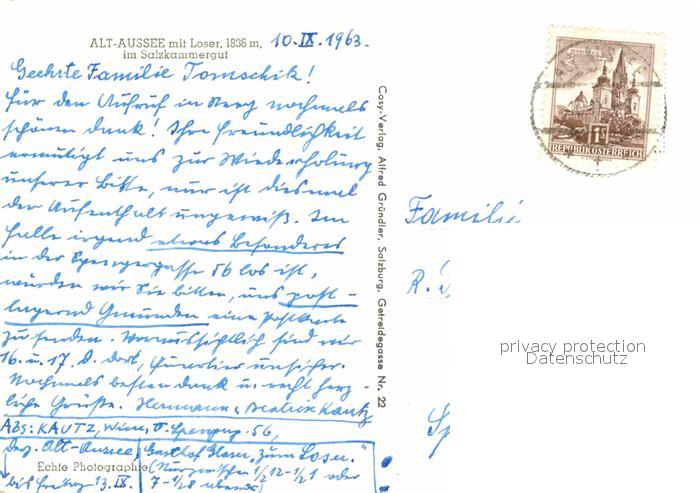 ALT-AUSSEE mit Loser, 1836 m,
im Salzkammergut
10.IX.1963.
Geehrte Familie Tomschik!
für den Aufruf in Steyr nochmals
schönen Dank! Ihre Freundlichkeit
ermutigt uns zur Wiederholung
unserer Bitte, nur ist diesmal
der Aufenthalt ungewiß. Im
Falle irgend etwas Besonderes
in der Spengergasse 56 los ist,
würden wir Sie bitten, uns post-
lagernd Gmunden eine Postkarte
zu senden. Voraussichtlich sind wir
16. u. 17. d. dort, Quartier unsicher.
Nochmals besten Dank u. recht herz-
liche Grüße. Hermann u. Beatrix Kautz
Abs: KAUTZ, Wien, V. Spengerg. 56,
dzt. Alt-Aussee, Gasthof "zum Loser."
Echte Photographie (Nur zwischen 1/2 12-1/2 1 oder
bis Freitag 13.IX. 7-1/2 8 abends)
Cosy-Verlag, Alfred Gründler, Salzburg, Getreidegasse Nr. 22
REPUBLIK ÖSTERREICH
Familie
R.
Sp
privacy protection
Datenschutz